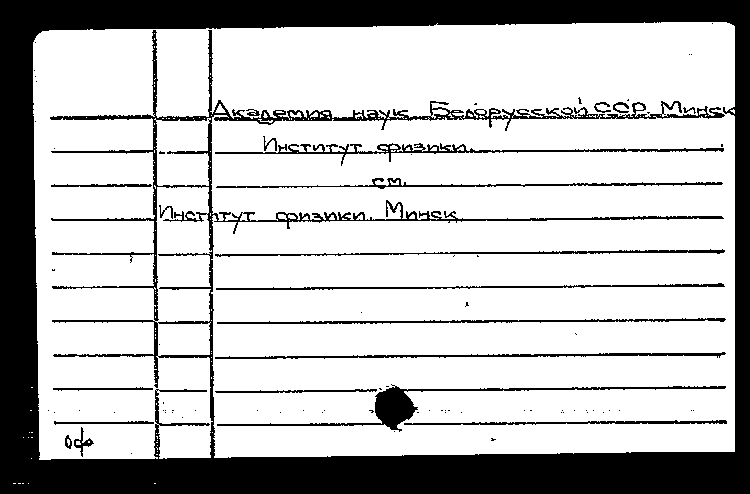 Академия наук Белорусской ССР. Минск
Институт физики.
см.
Институт физики. Минск
офо